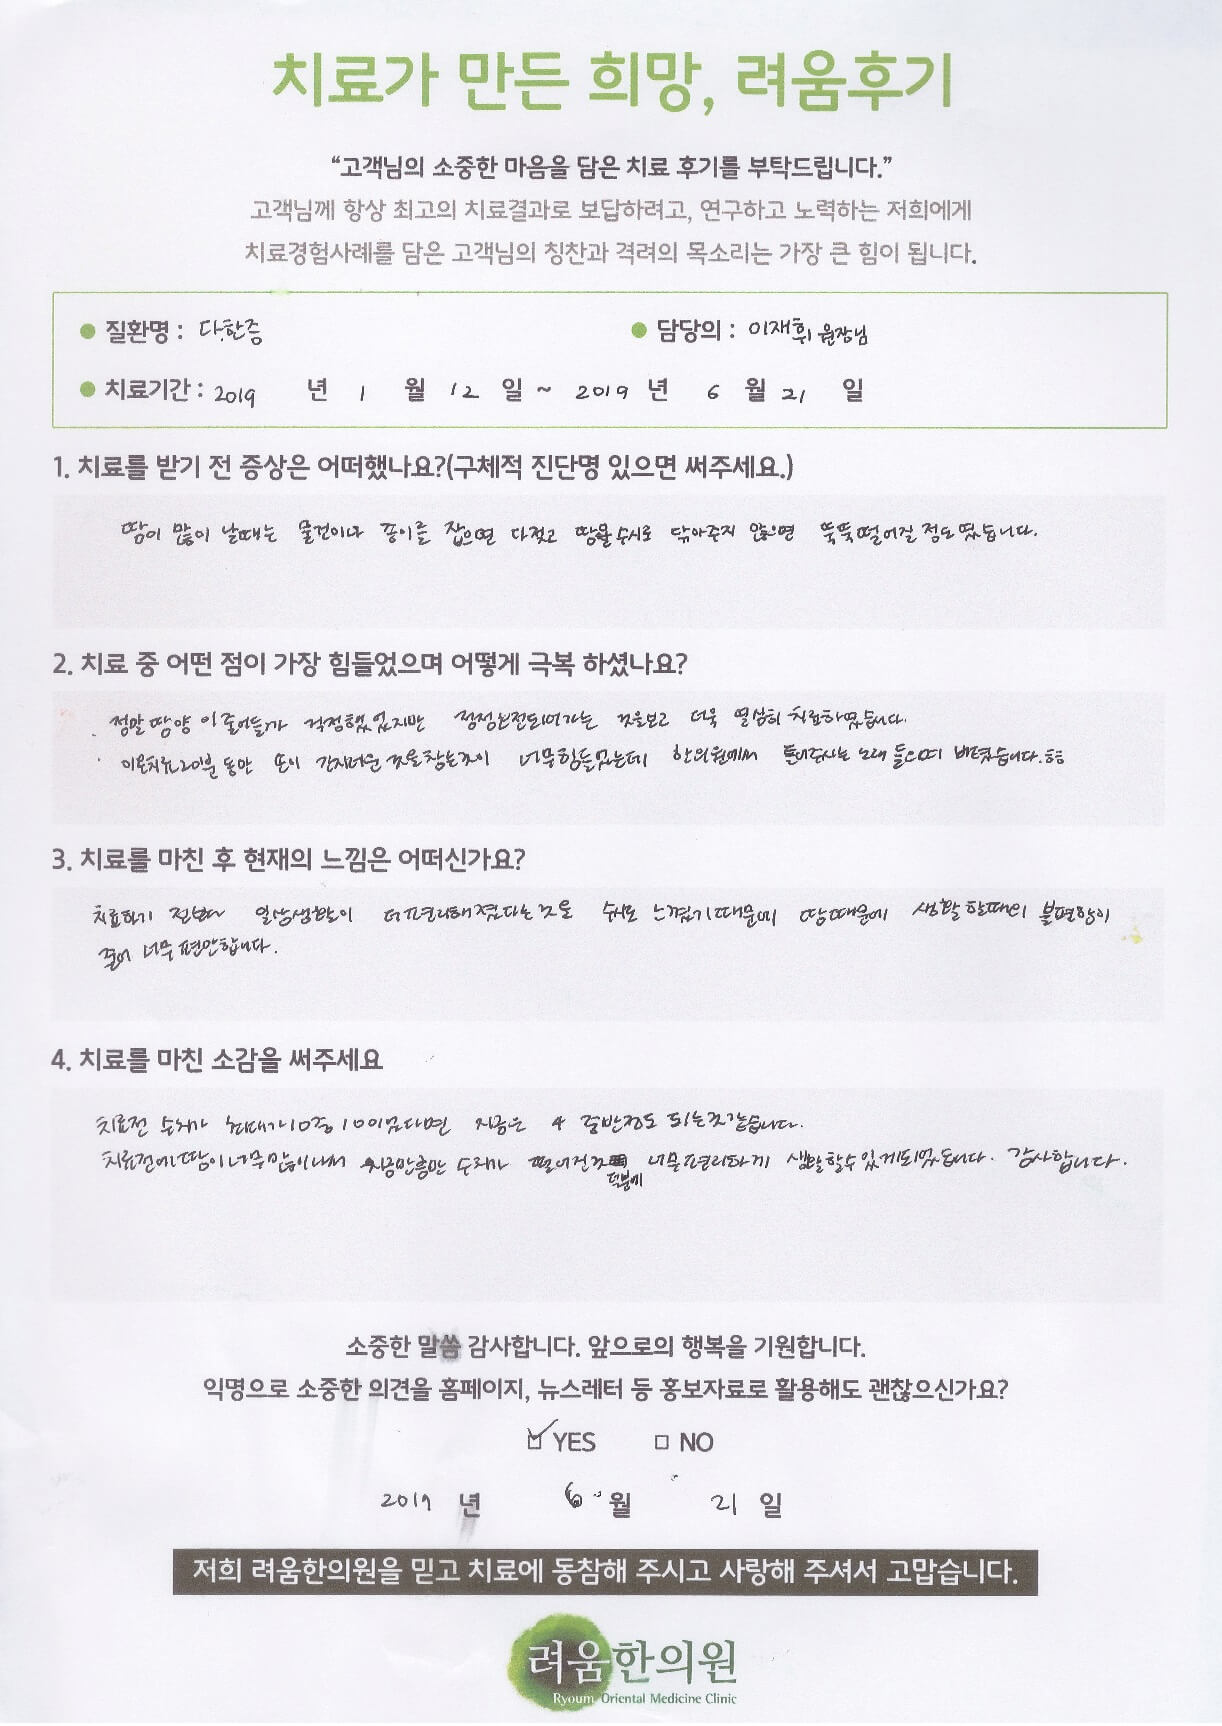 치료가 만든 희망, 려움후기
“고객님의 소중한 마음을 담은 치료 후기를 부탁드립니다.”
고객님께 항상 최고의 치료결과로 보답하려고, 연구하고 노력하는 저희에게
치료경험사례를 담은 고객님의 칭찬과 격려의 목소리는 가장 큰 힘이 됩니다.
● 질환명 : 다한증 ● 담당의 : 이재휘 원장님
● 치료기간 : 2019 년 1 월 12 일 ~ 2019 년 6 월 21 일
1. 치료를 받기 전 증상은 어떠했나요?(구체적 진단명 있으면 써주세요.)
땀이 많이 날때는 물건이나 종이를 잡으면 다젖고 땀을 수시로 닦아주지 않으면 뚝뚝떨어질 정도였습니다.
2. 치료 중 어떤 점이 가장 힘들었으며 어떻게 극복 하셨나요?
정말 땀양이 줄어들까 걱정했었지만 점점호전되어가는 것을보고 더욱 열심히 치료하였습니다.
이온치료20분 동안 손이 간지러운 것을참는것이 너무힘들었는데 한의원에서 틀어주시는 노래 들으며 버텼습니다.ㅎㅎ
3. 치료를 마친 후 현재의 느낌은 어떠신가요?
치료하기 전보다 일상생활이 더편리해졌다는것을 수시로 느꼈기때문에 땀때문에 생활할때의 불편함이
줄어 너무편안합니다.
4. 치료를 마친 소감을 써주세요
치료전 수치가 최대가10중 10이었다면 지금은 4 중반정도 되는것같습니다.
치료전에 땀이너무많이나서 지금만큼만 수치가 떨어진것 덕분에 너무편리하게 생활할수있게되었습니다. 감사합니다.
소중한 말씀 감사합니다. 앞으로의 행복을 기원합니다.
익명으로 소중한 의견을 홈페이지, 뉴스레터 등 홍보자료로 활용해도 괜찮으신가요?
☑ YES □ NO
2019 년 6 월 21 일
저희 려움한의원을 믿고 치료에 동참해 주시고 사랑해 주셔서 고맙습니다.
려움한의원
Ryoum Oriental Medicine Clinic